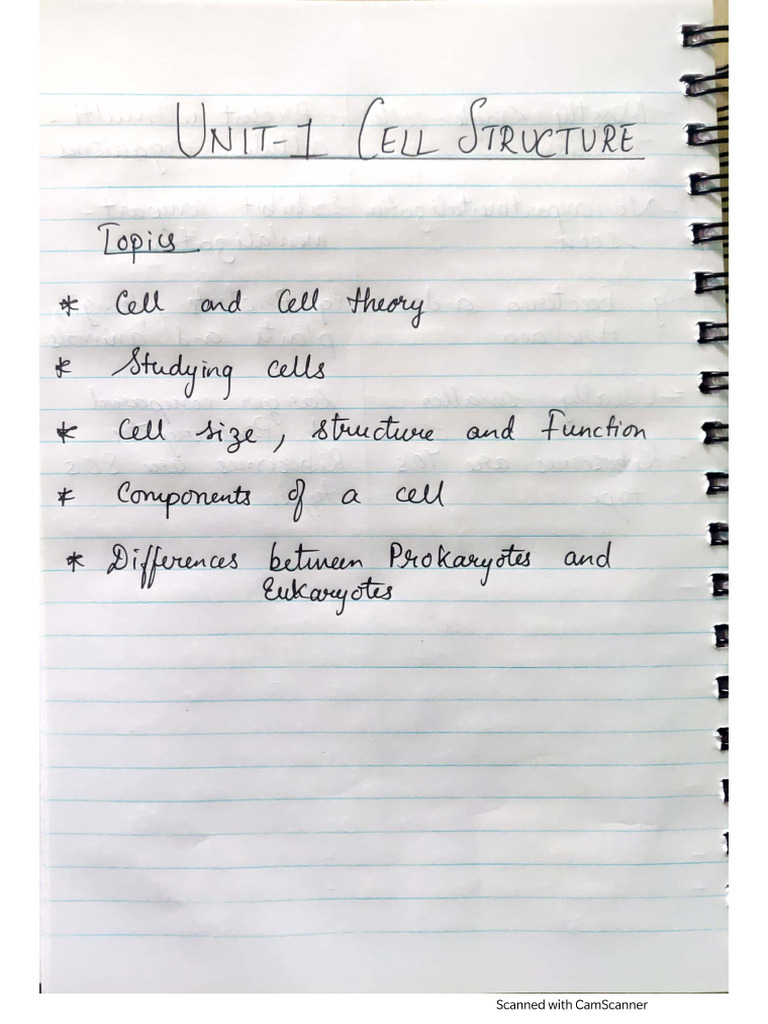 UNIT-1 CELL STRUCTURE
Topics
* Cell and Cell theory
* Studying cells
* Cell size, structure and Function
* Components of a cell
* Differences between Prokaryotes and
Eukaryotes
Scanned with CamScanner